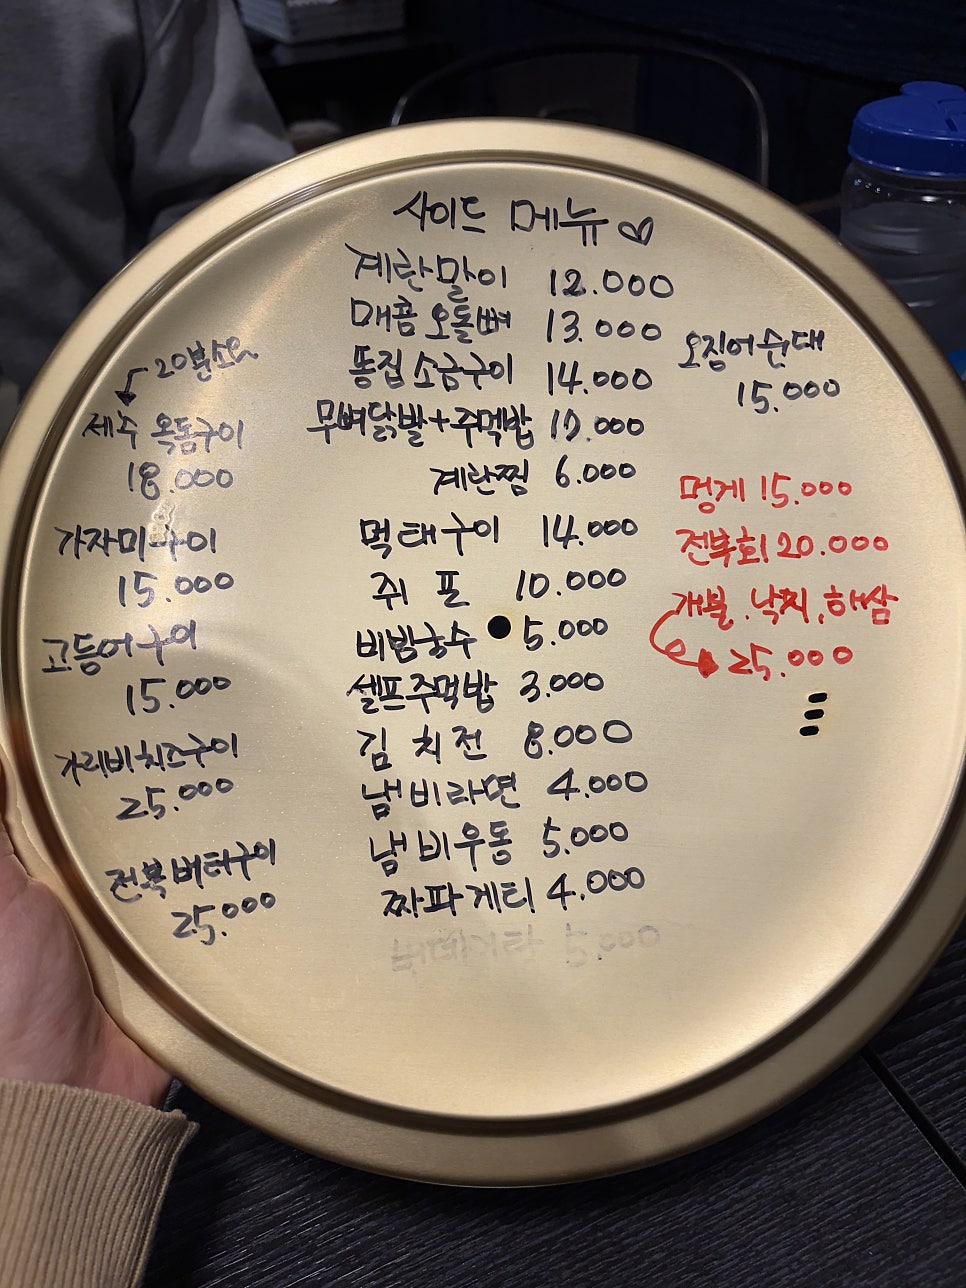 사이드 메뉴♡
계란말이 12.000
매콤오돌뼈 13.000
똥집소금구이 14.000
무뼈닭발+주먹밥 17.000
계란찜 6.000
먹태구이 14.000
쥐포 10.000
비빔국수 5.000
셀프주먹밥 3.000
김치전 8.000
냄비라면 4.000
냄비우동 5.000
짜파게티 4.000
5.000
20분소요
제주 옥돔구이
18.000
가자미구이
15.000
고등어구이
15.000
가리비치즈구이
25.000
전복버터구이
25.000
오징어순대
15.000
멍게 15.000
전복회 20.000
개불.낙지.해삼
25.000